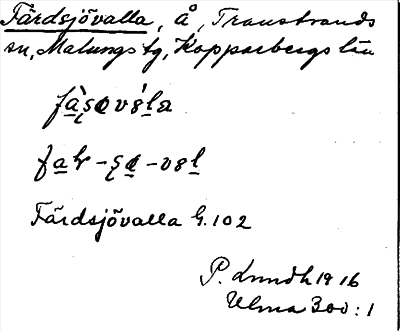 Färdsjövalla, å, Transtrands
sn, Malungs tg, Kopparbergs län
Färdsjövalla G. 102
P. Lundh 1916
Ulma 300:1